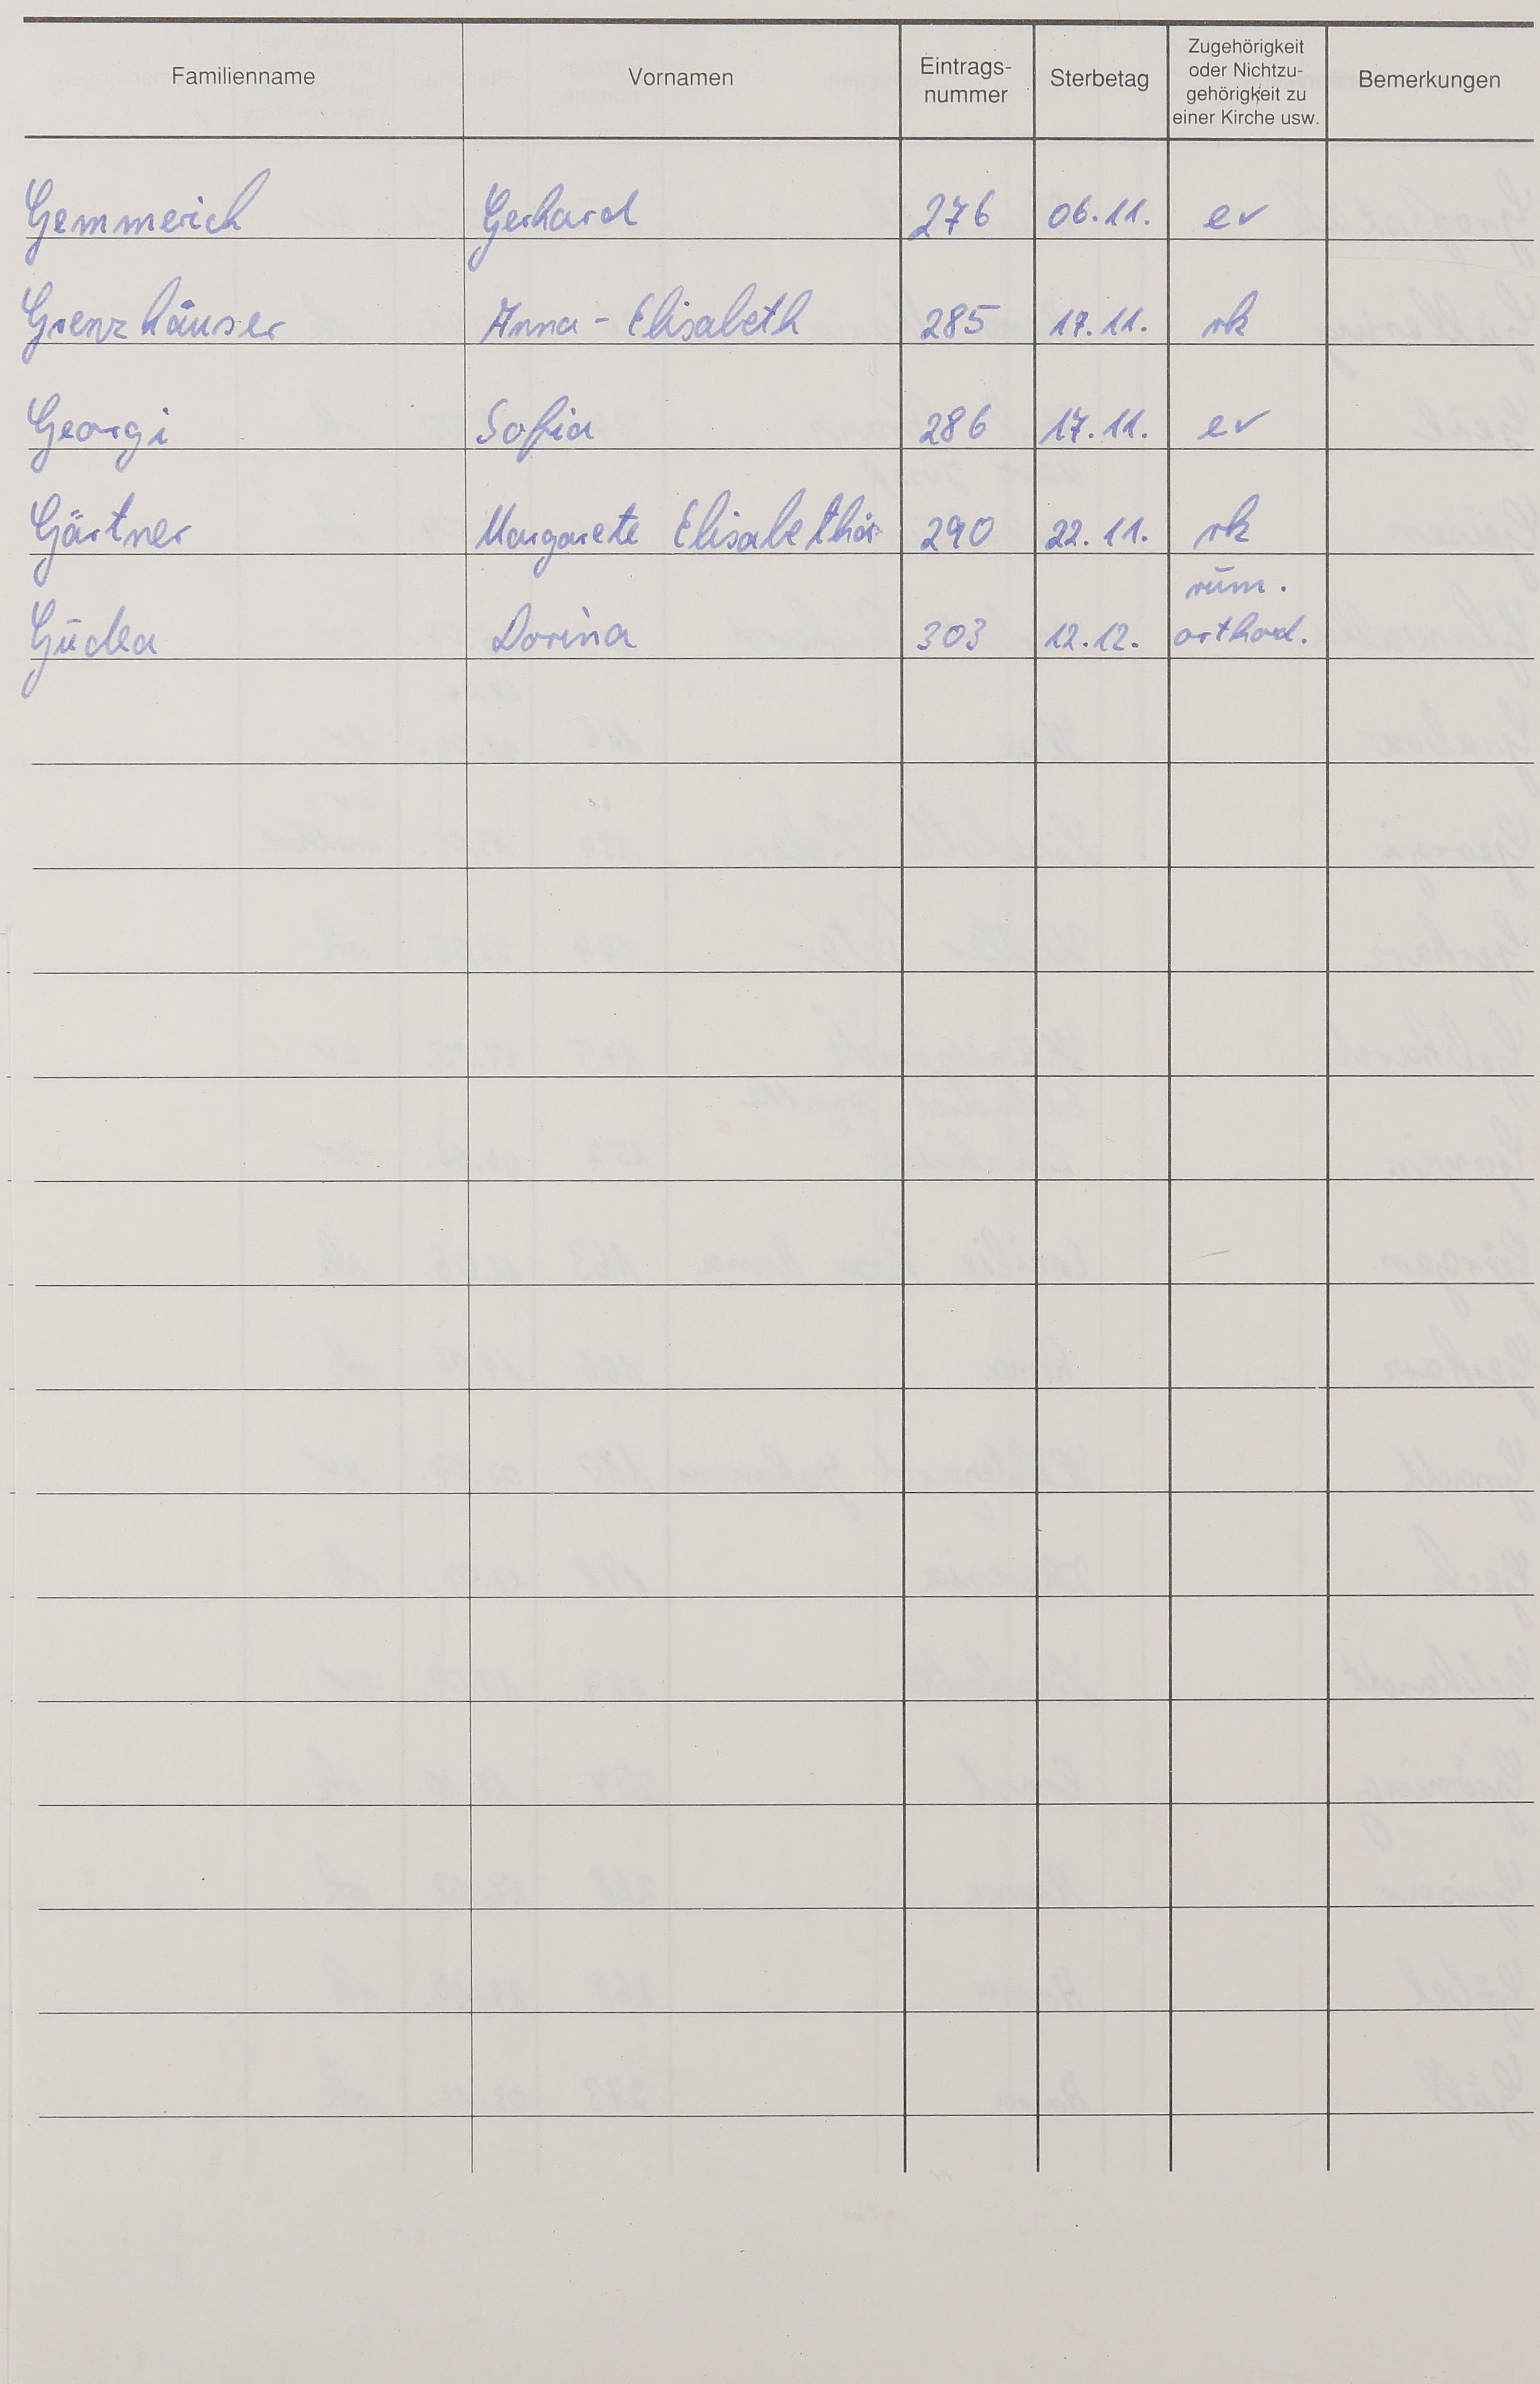 Familienname Vornamen Eintrags-nummer Sterbetag Zugehörigkeit oder Nichtzu-gehörigkeit zu einer Kirche usw. Bemerkungen
Gemmerich Gerhard 276 06.11. ev
Grenzhäuser Anna-Elisabeth 285 17.11. rk
Georgi Sofia 286 17.11. ev
Gärtner Margarete 290 22.11. rk
rum.
Gudea Dorina 303 12.12. orthod.